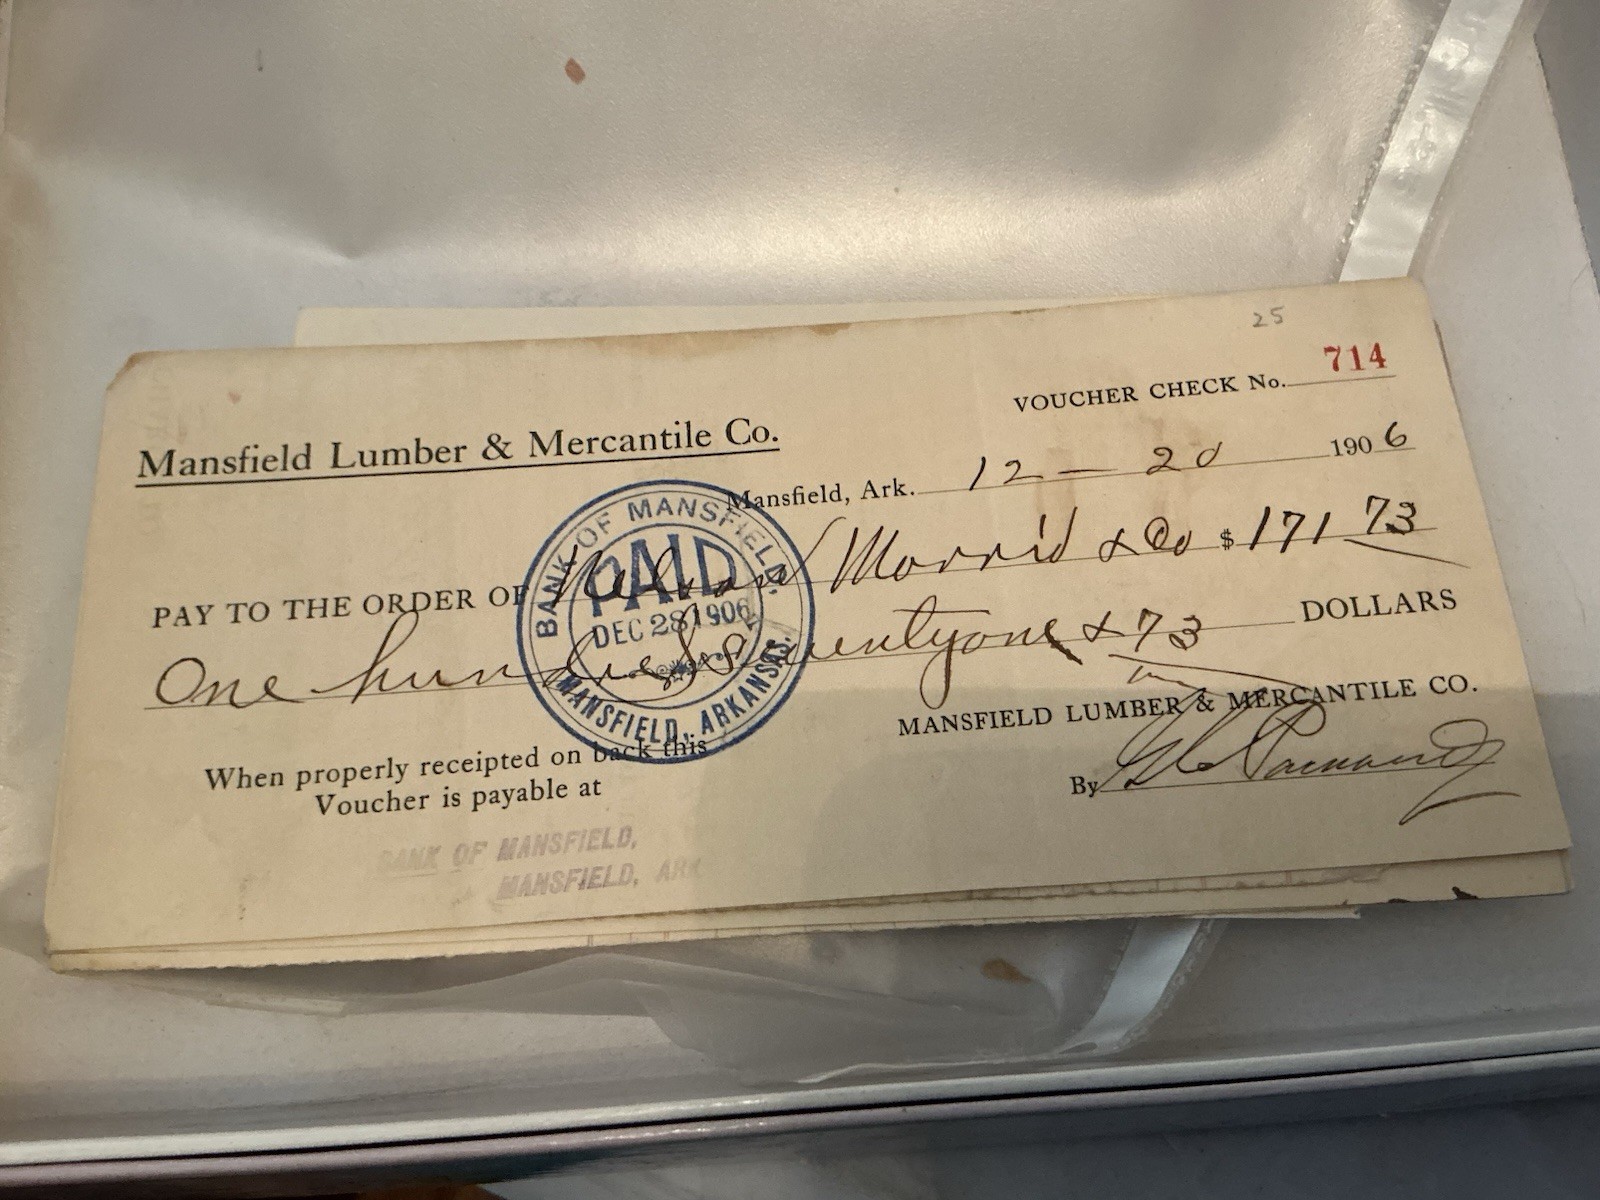 25
VOUCHER CHECK No. 714
Mansfield Lumber & Mercantile Co.
Mansfield, Ark. 12 — 20 1906
PAY TO THE ORDER OF Nelson Morris & Co $171 73
One hundred & Seventyone & 73 DOLLARS
BANK OF MANSFIELD,
PAID
DEC 28 1906
MANSFIELD, ARKANSAS.
MANSFIELD LUMBER & MERCANTILE CO.
When properly receipted on back this
Voucher is payable at
By
BANK OF MANSFIELD,
MANSFIELD, ARK